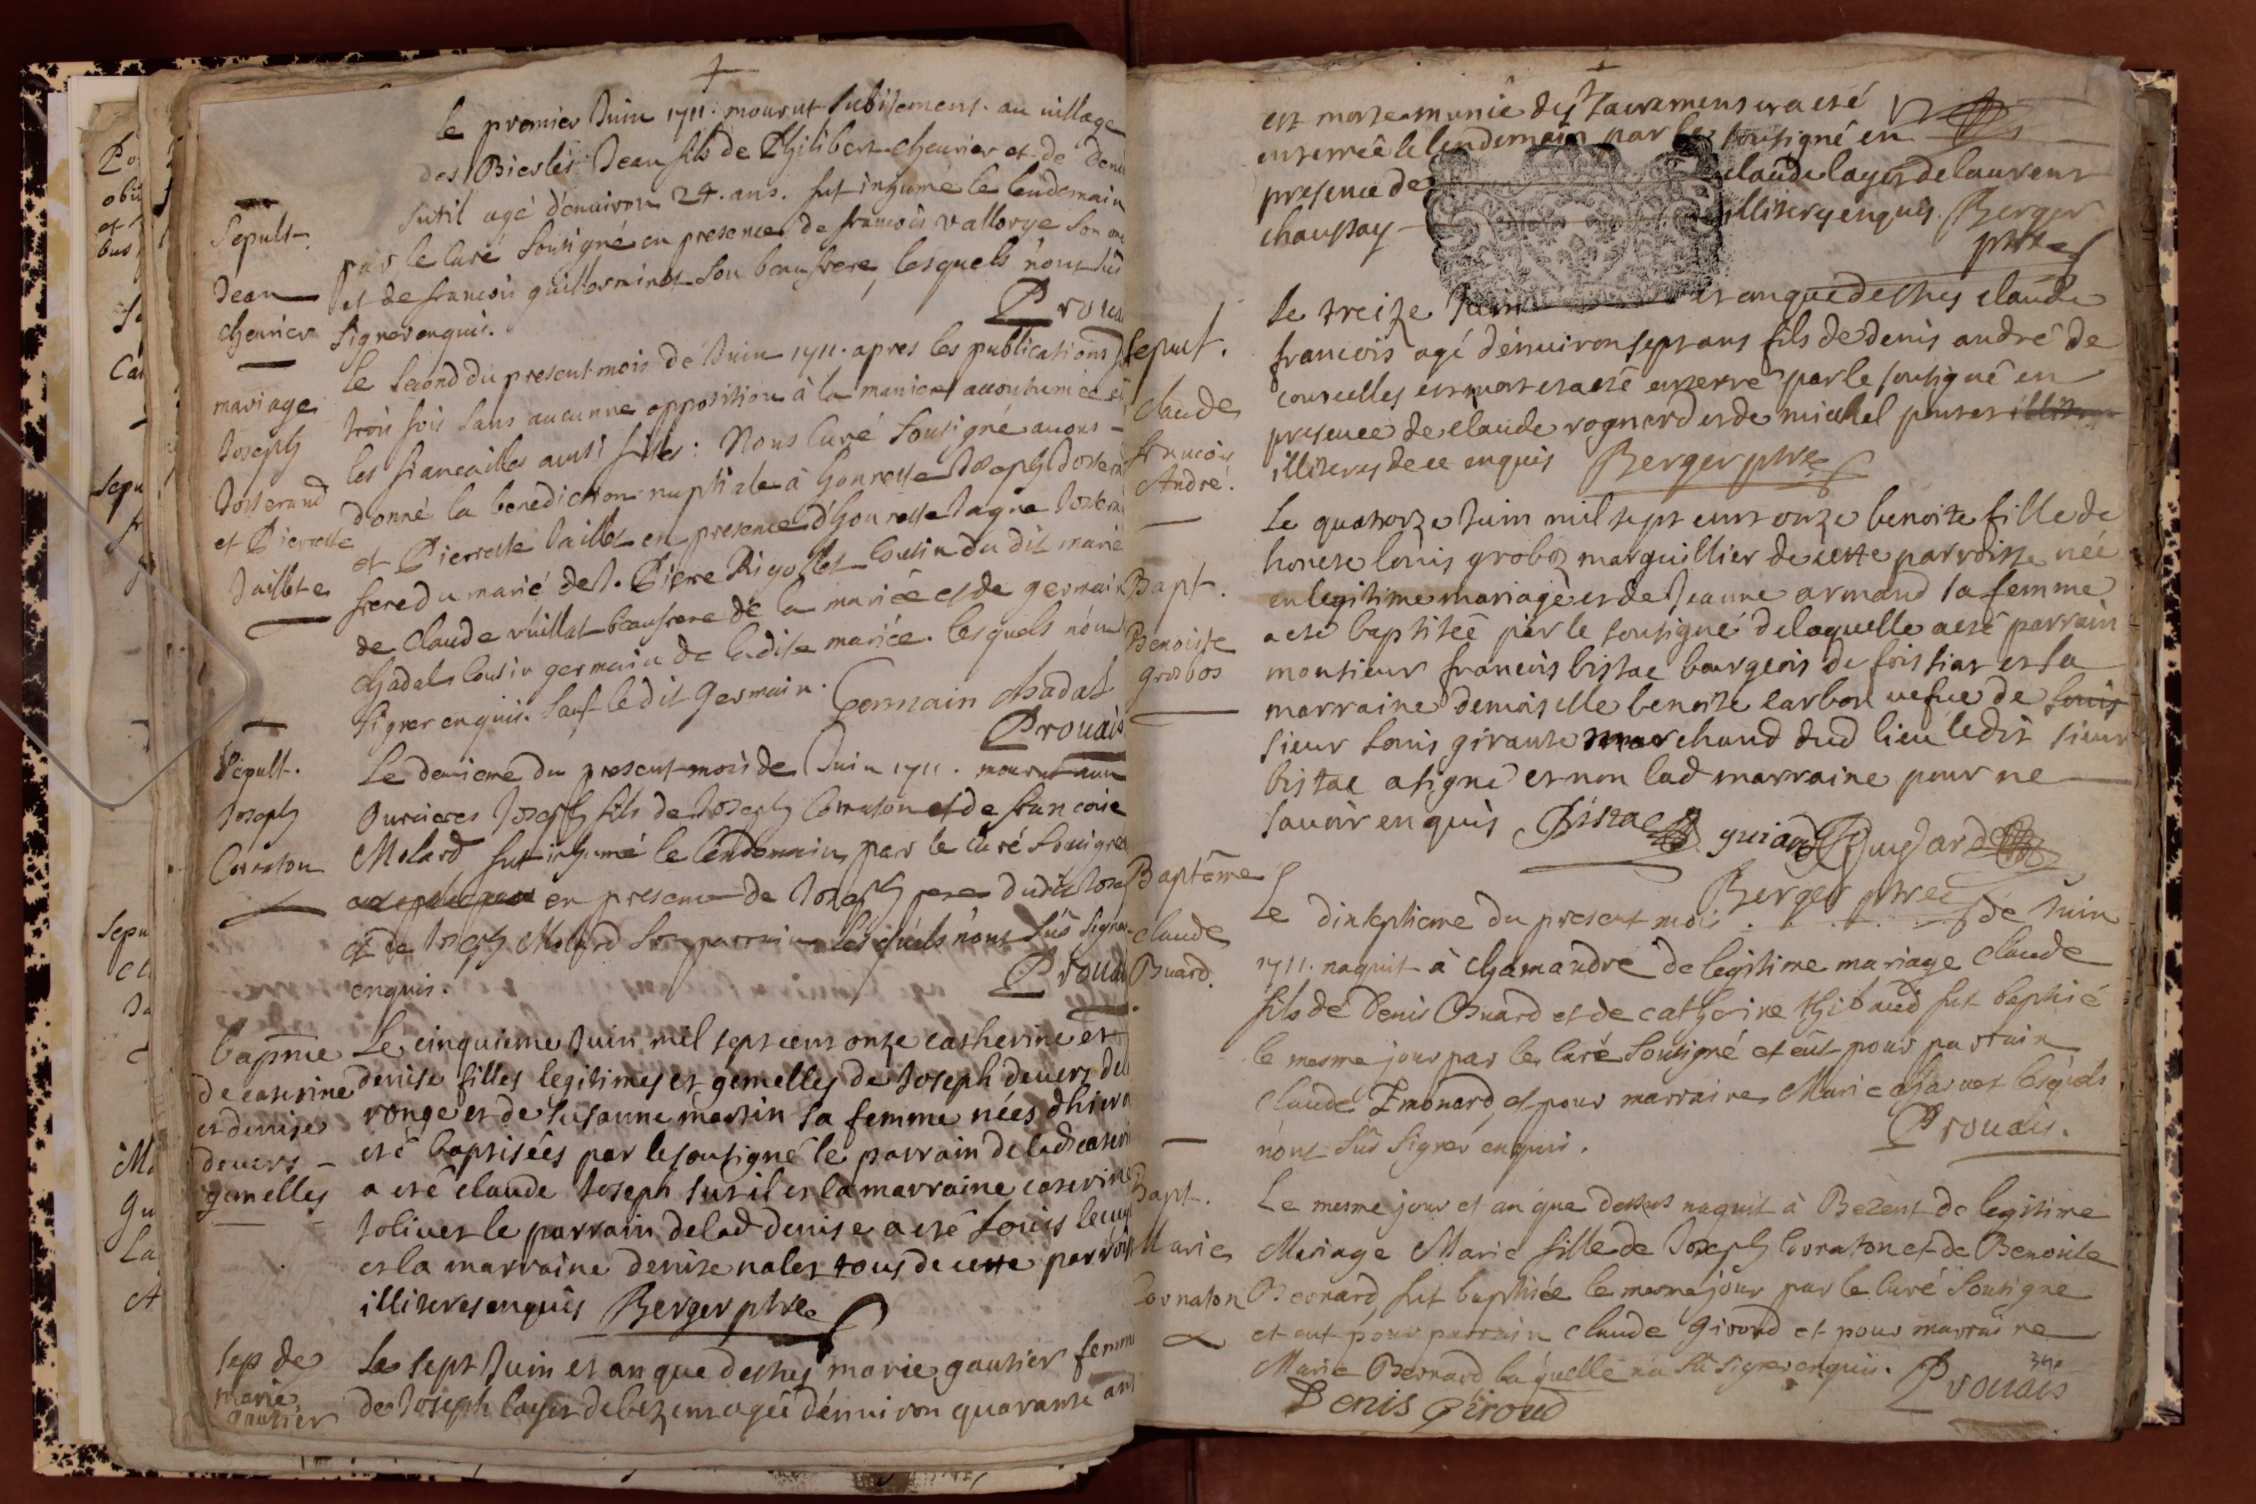 le premier Juin 1711. mourut subitement au village
des Biesles Jean fils de Philibert Cheurier et de
sutil agé d'enuiron 24. ans. fut inhumé le lendemain
par le curé sousigné en presence de francois Vallorge son
et de francois guillerminet son beaufrere, lesquels n'ont sçu
signer enquis.
Sepult.
Jean
cheurier
le second du present mois de Juin 1711. apres les publications
trois fois sans aucunne opposition à la maniere accoutumée et
les fiancailles aussi faites: Nous Curé sousigné auons
donné la benediction nuptiale à honneste Joseph
et Pierrette Jaillet en presence d'honneste
frere du marié de J. Pierre Rigollet cousin du dit marié
de Claude vuillat beaufrere de la mariée et de germain
chadal cousin germain de ladite mariée. lesquels n'ont
signer enquis. sauf ledit Germain. Germain chadal
Prouais
mariage
Joseph
Josserand
et Pierrette
Jaillet
Le deuxieme du present mois de Juin 1711. mourut aux
Joseph fils de Joseph Cornaton et de francoise
Molard fut inhumé le lendemain par le curé sousigné
en presence de Joseph pere dudit
et de Joseph Molard son parrain lesquels n'ont sçus signer
enquis.
Sepult.
Joseph
Cornaton
Le cinquieme Juin mil sept cens onze catherine et
denise filles legitimes et gemelles de Joseph deuers
ronge et de susanne martin sa femme nées d'hier
eté baptisées par le sousigné le parrain de lad
a eté claude Joseph sutil et la marraine caterine
Joliuet le parrain de lad denise a eté Louis
et la marraine denise nalet tous de cette
illiteres enquis Berger ptre
bapme
de caterine
et denise
deuers
gemelles
Le sept Juin et an que dessus marie gautier
de Joseph layer de bezens agée d'enuiron quarante ans
sep de
marie
gautier
est morte munie des sacramens et a eté
enterrée le lendemain par le sousigné en
presence de claude layer de laurent
chaussay illiteres enquis. Berger
ptre
Le treize Juin et an que dessus claude
francois agé d'enuiron sept ans fils de denis andré de
courcelles est mort et a eté enterré par le sousigné en
presence de claude rognard et de michel
illiteres de ce enquis Berger ptre
Sepult.
Claude
francois
André.
Le quatorze Juin mil sept cens onze benoite fille de
honete louis groboz marguillier de cette parroisse née
en legitime mariage et de Jeanne armand sa femme
a eté baptisée par le sousigné de laquelle a eté parrain
monsieur francois bistac bourgeois de foissiat et la
marraine demoiselle benoite carbon vefue de
sieur Louis girault marchand dud lieu ledit sieur
bistac a signé et non lad marraine pour ne
sauoir enquis Bistac
Berger ptre
Bapt.
Benoiste
Grobos
Le dixseptieme du present mois de Juin
1711. naquit à chamandré de legitime mariage Claude
fils de Denis Buard et de catherine thibaud fut baptisé
le mesme jour par le curé sousigné et eut pour parrain
claude Emonard, et pour marraine Marie charuet lesquels
n'ont sçu signer enquis. Prouais.
Baptême
claude
Buard.
Le mesme jour et an que dessus naquit à Bezens de legitime
Mariage Marie fille de Joseph Cornaton et de Benoite
Bernard, fut baptisée le mesme jour par le curé sousigné
et eut pour parrain claude Giroud et pour marraine
Marie Bernard laquelle n'a sçu signer enquis. Prouais
Denis Giroud
Bapt.
Marie
Cornaton